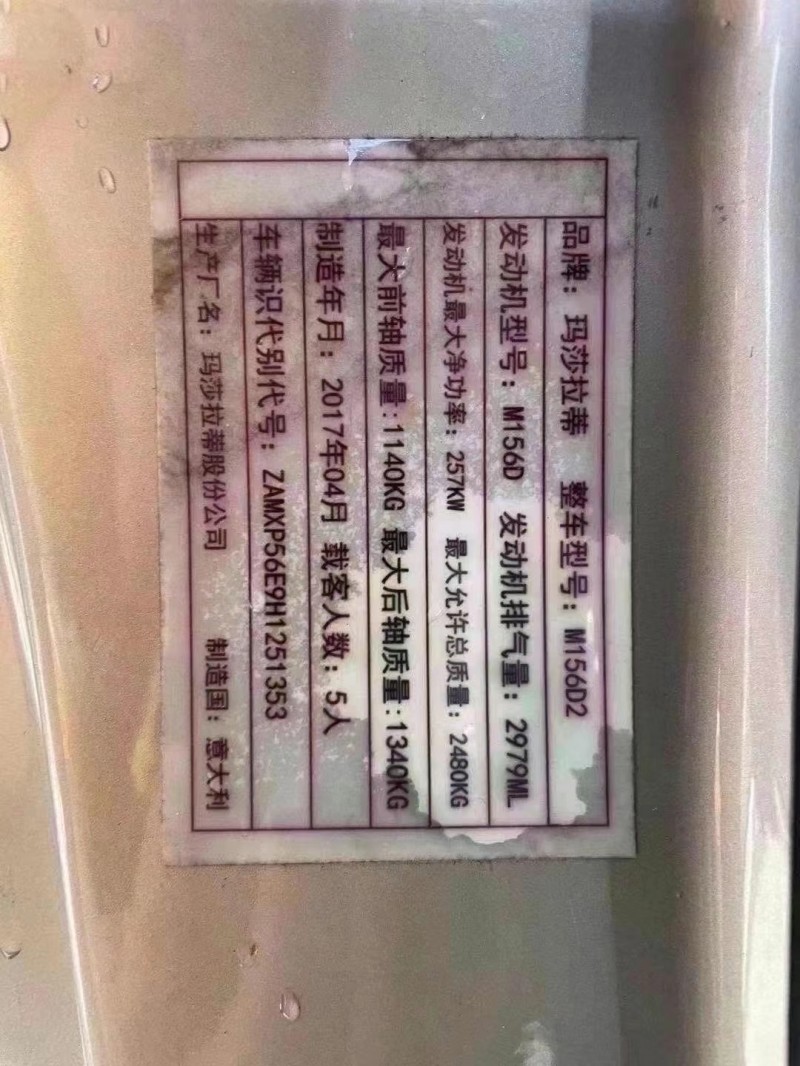 品牌：玛莎拉蒂 整车型号：M156D2
发动机型号：M156D 发动机排气量：2979ML
发动机最大净功率：257KW 最大允许总质量：2480KG
最大前轴质量:1140KG 最大后轴质量:1340KG
制造年月：2017年04月 载客人数：5人
车辆识代别代号：ZAMXP56E9H1251353
生产厂名：玛莎拉蒂股份公司 制造国：意大利